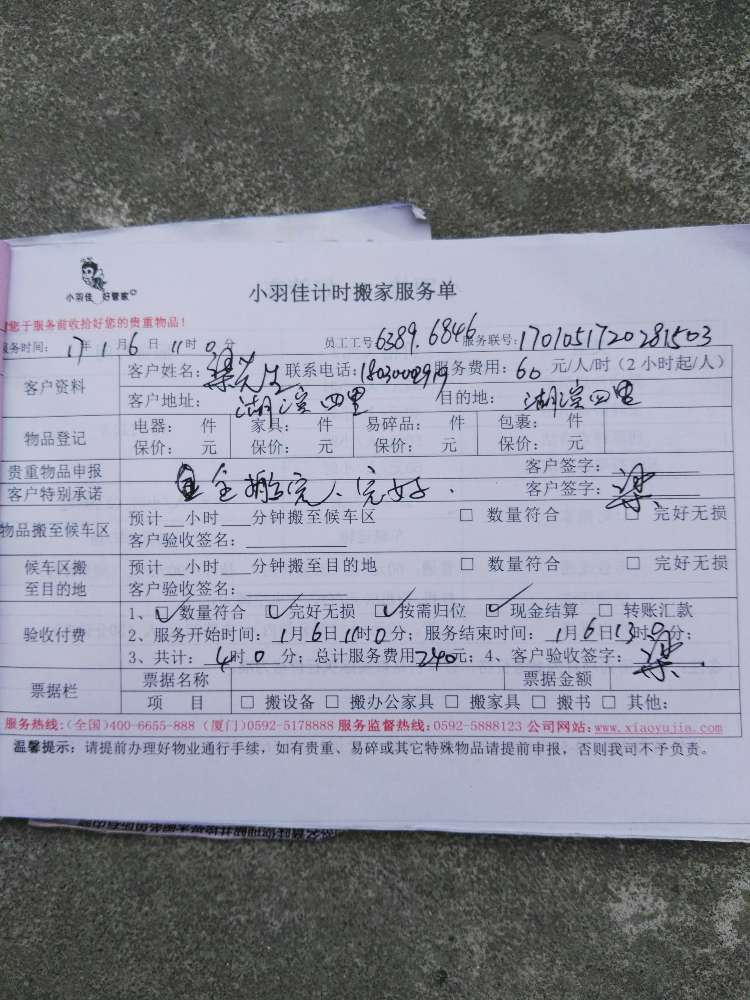 小羽佳 好管家
小羽佳计时搬家服务单
您于服务前收拾好您的贵重物品!
服务时间: 17年1月6日11时0分 员工工号6389.6846 服务联号:1701051720281503
客户资料 客户姓名:梁先生 联系电话: 服务费用:60 元/人/时(2小时起/人)
客户地址: 湖滨四里 目的地: 湖滨四里
物品登记 电器: 件 家具: 件 易碎品: 件 包裹: 件
保价: 元 保价: 元 保价: 元 保价: 元
贵重物品申报 客户签字:
客户特别承诺 全搬完、完好. 客户签字: 梁
物品搬至候车区 预计__小时___分钟搬至候车区 □ 数量符合 □ 完好无损
客户验收签名:
候车区搬至目的地 预计__小时___分钟搬至目的地 □ 数量符合 □ 完好无损
客户验收签名:
验收付费 1、☑数量符合 ☑完好无损 ☑按需归位 ☑现金结算 □ 转账汇款
2、服务开始时间: 1月6日11时0分; 服务结束时间: 1月6日13时0分;
3、共计: 4时0分; 总计服务费用240元; 4、客户验收签字: 梁
票据栏 票据名称 票据金额
项 目 □ 搬设备 □ 搬办公家具 □ 搬家具 □ 搬书 □ 其他:
服务热线:(全国)400-6655-888 (厦门)0592-5178888 服务监督热线:0592-5888123 公司网站:www.xiaoyujia.com
温馨提示: 请提前办理好物业通行手续,如有贵重、易碎或其它特殊物品请提前申报,否则我司不予负责。